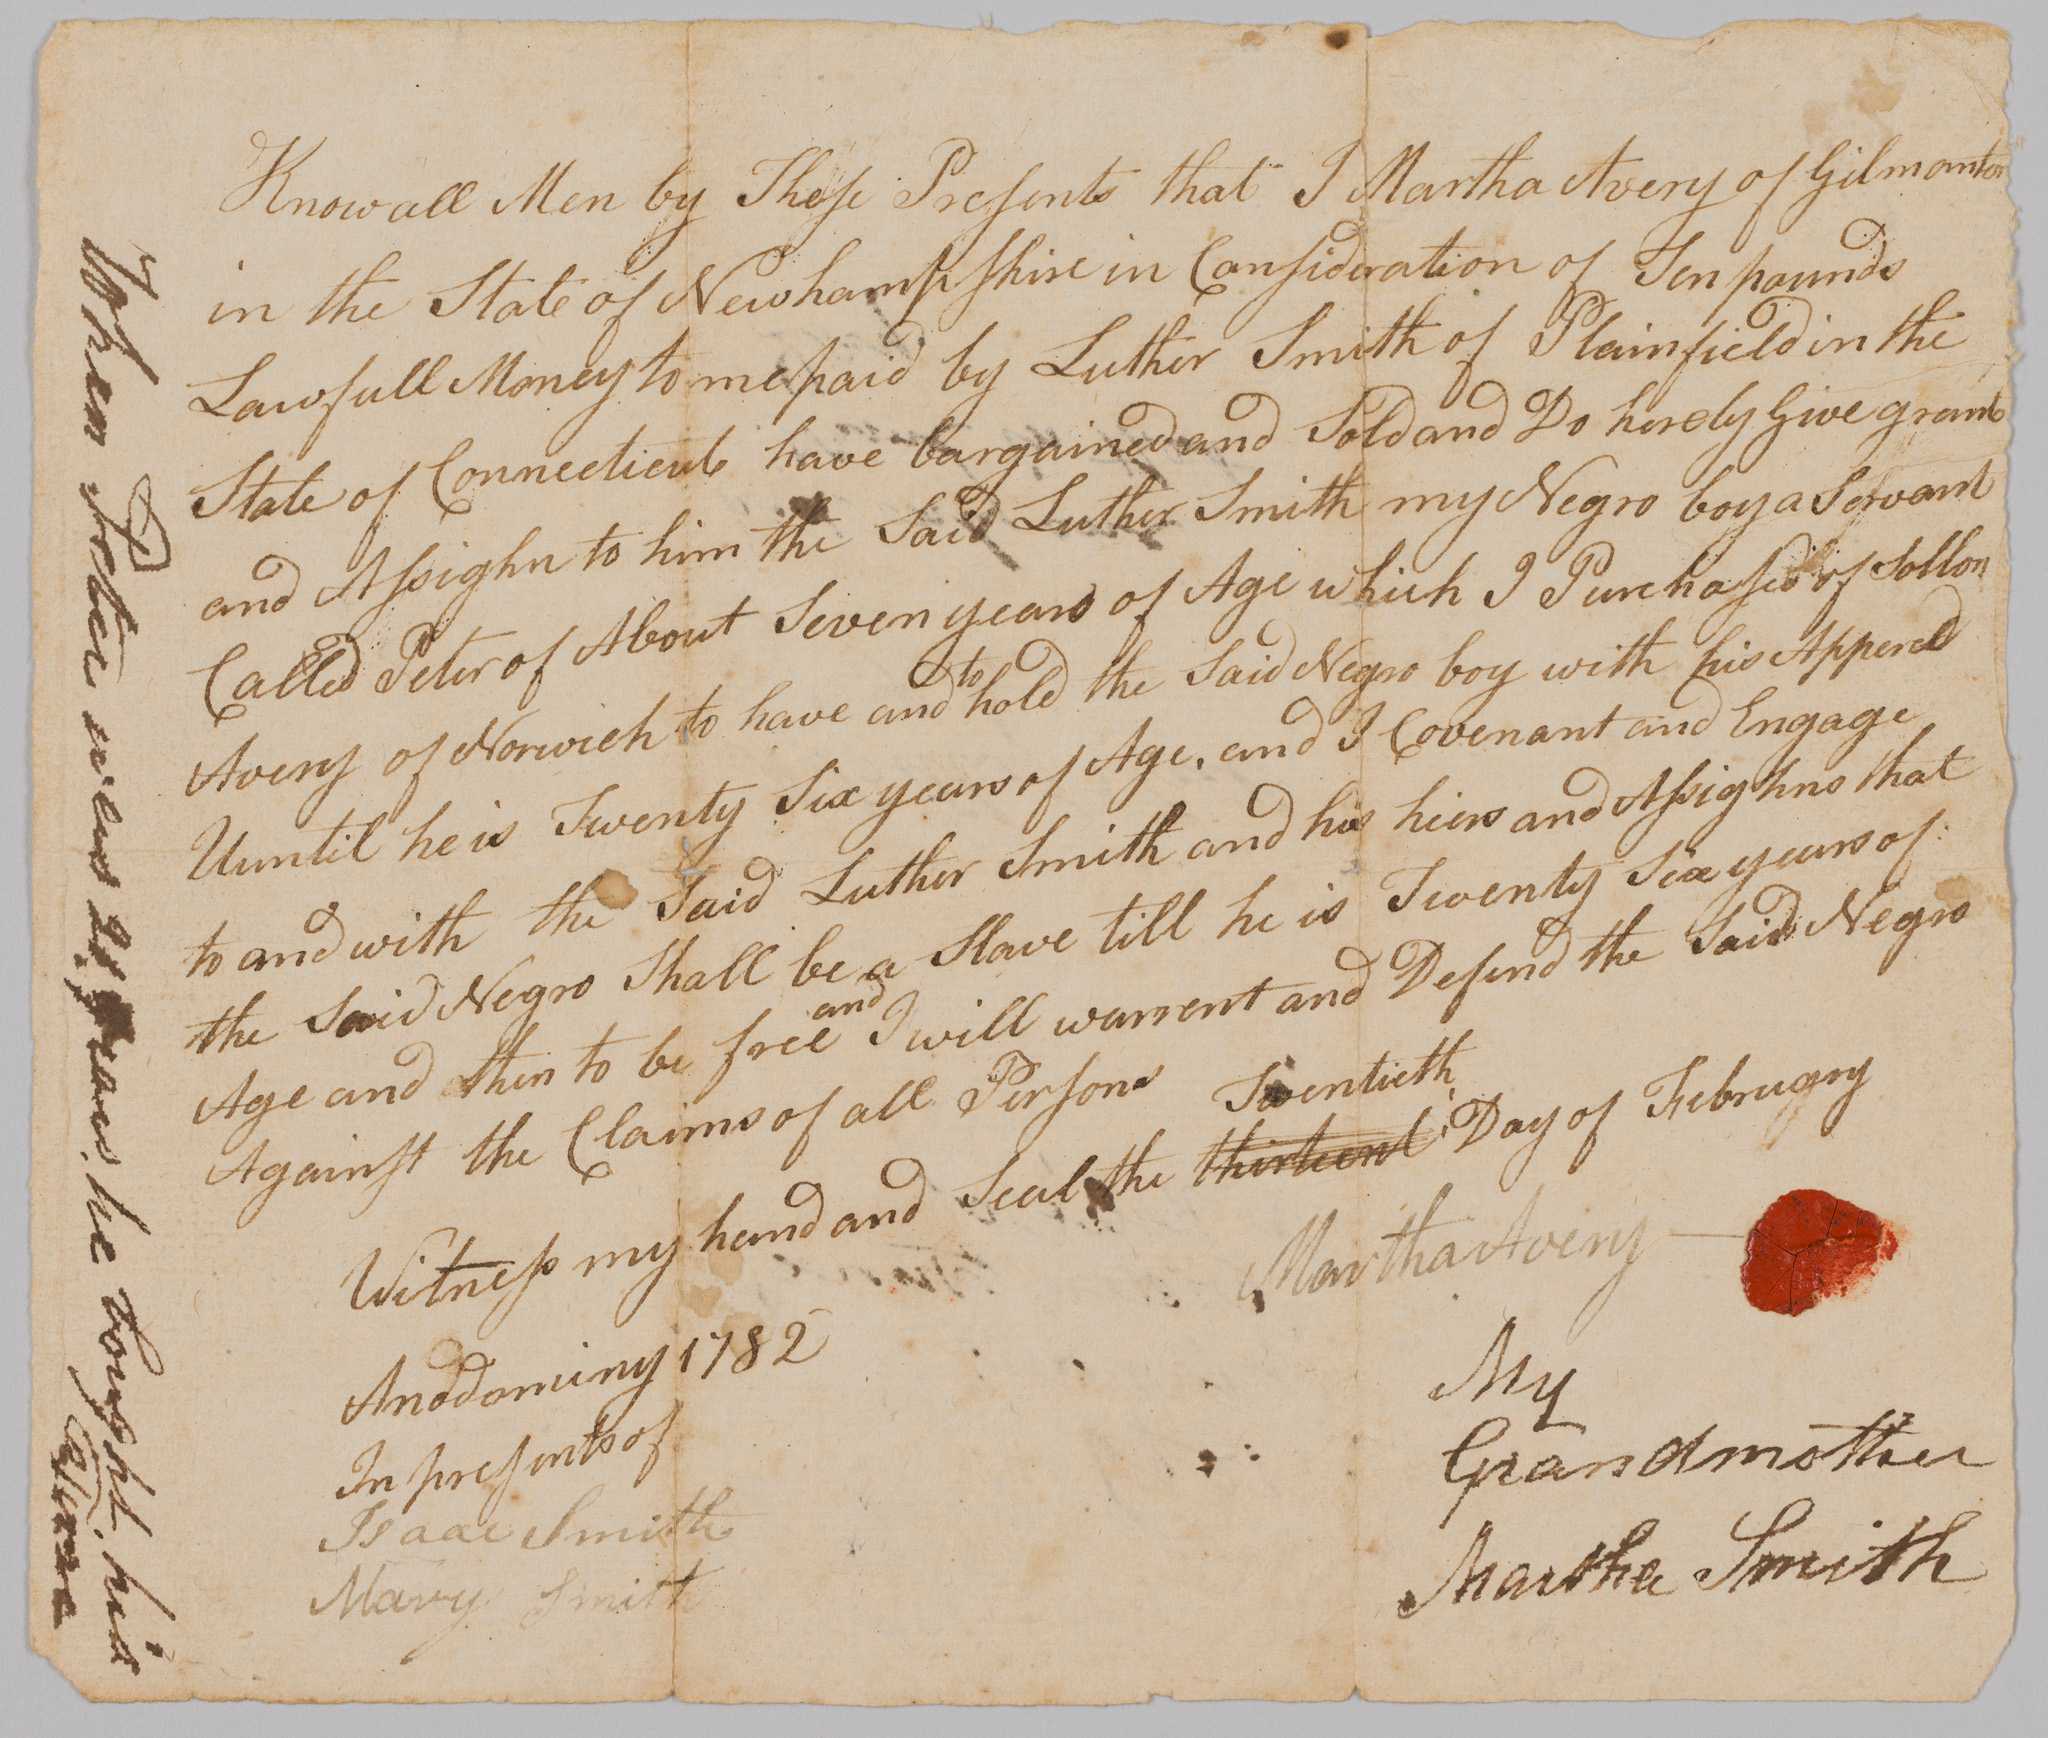 Know all Men by These Presents that I Martha Avery of Gilmanton
in the State of Newhampshire in Consideration of Ten pounds
Lawfull Money to me paid by Luther Smith of Plainfield in the
State of Connecticut have bargained and Sold and Do hereby Give grant
and Assighn to him the Said Luther Smith my Negro boy a Servant
Called Peter of About Seven years of Age which I Purchased of Sollon
Avery of Norwich to have and to hold the Said Negro boy with his Apperel
Uuntil he is Twenty Six years of Age, and I Covenant and Engage
to and with the Said Luther Smith and his hiers and Assighns that
the Said Negro Shall be a Slave till he is Twenty Six years of
Age and then to be free and I will warrent and Defend the Said Negro
Against the Claims of all Persons
Witness my hand and Seal the thirteent Twentieth Day of February
Martha Avery
Anoddominy 1782
In presents of
Isaac Smith
Mary Smith
My
Grandmother
Martha Smith
When Peter was 21 years, he bought his
time